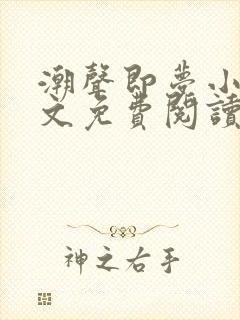 潮聲即夢小
文免費閱讀
神之右手